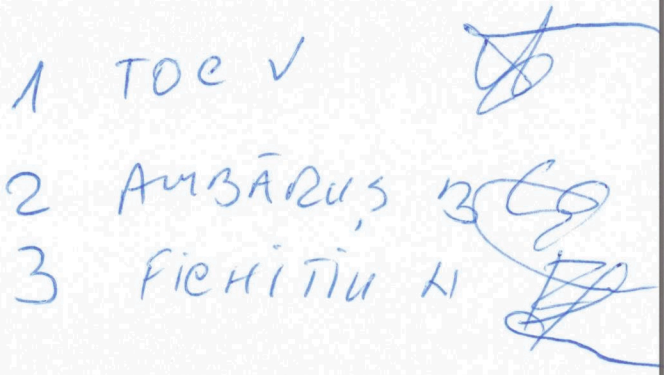 1 TOC V
2 AMBĂRUȘ B
3 FICHITIU